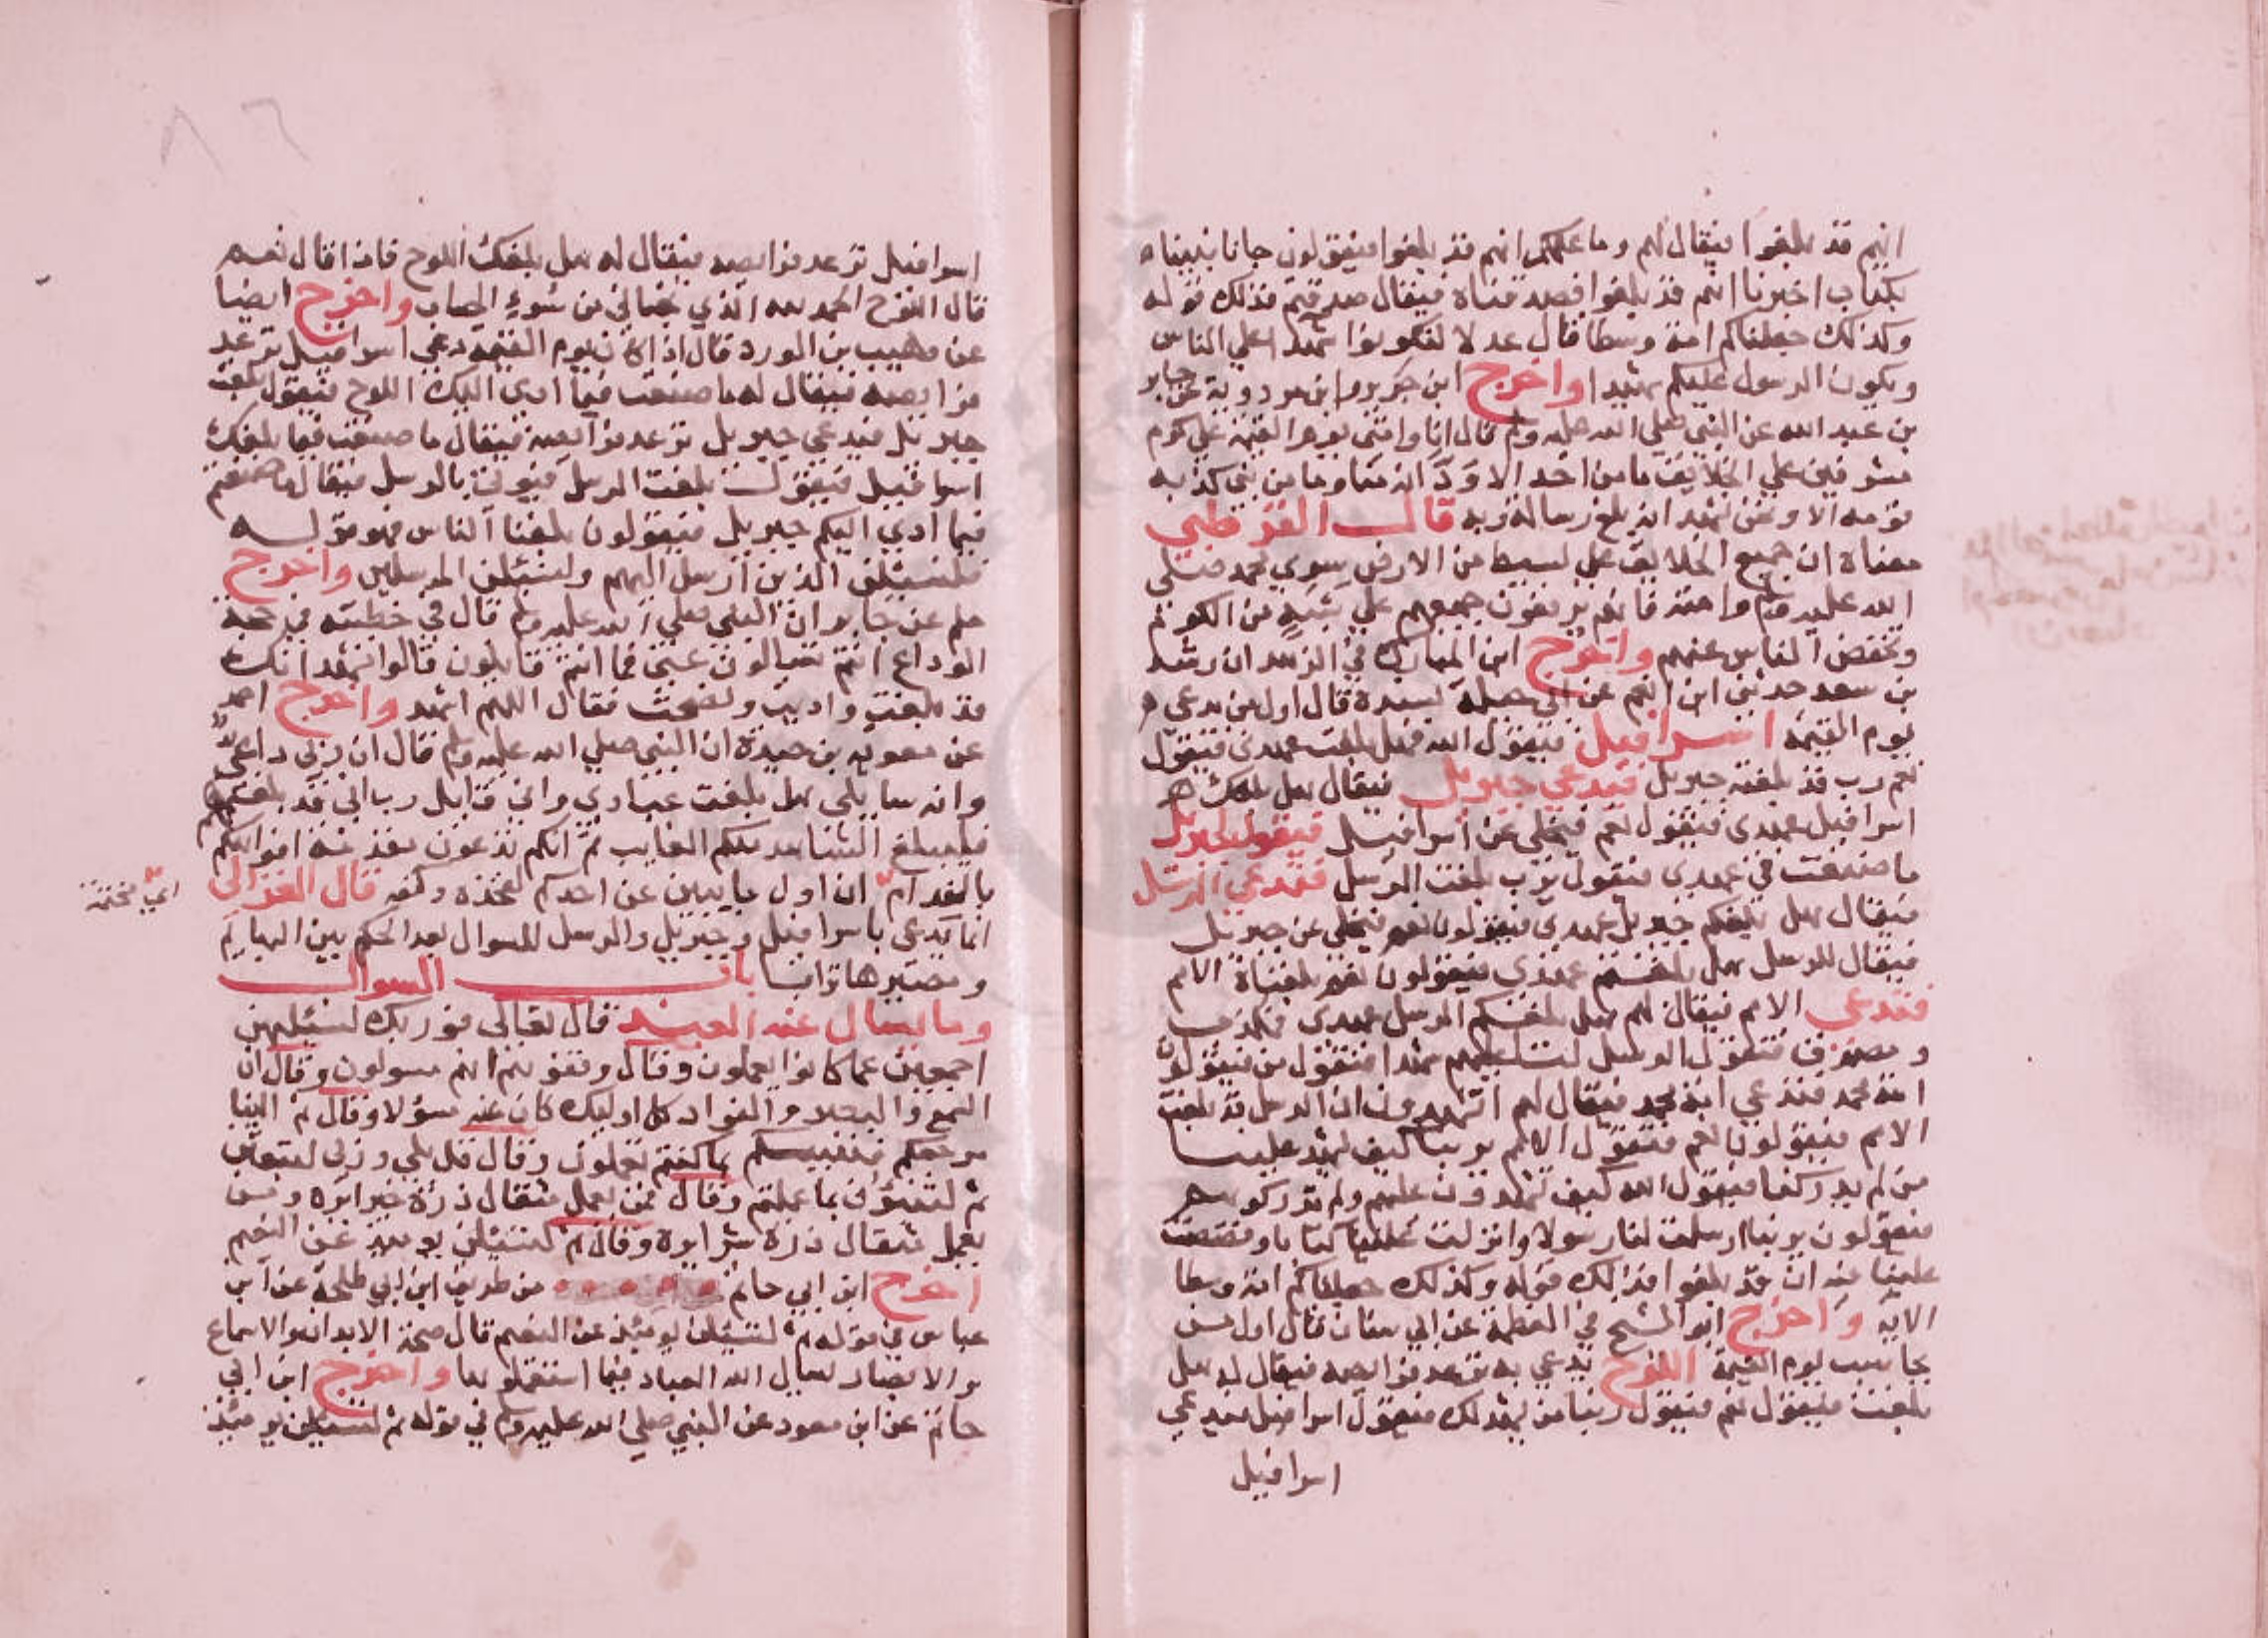 انهم قد بلغوا فيقال لهم وما علمكم انهم قد بلغوا فيقولون جانا نبينا
بكتاب اخبرنا انهم قد بلغوا فصدقناه فيقال صدقتم فذلك قوله
وكذلك جعلناكم امة وسطا قال عدلا لتكونوا شهدا علي الناس
ويكون الرسول عليكم شهيدا واخرج ابن جرير وابن مردوية عن جابر
بن عبد الله عن النبي صلي الله عليه وسلم قال انا وامتي يوم القيمة علي كوم
مشرفين علي الخلايق ما من احد الا وَدَّ انه منا وما من نبي كذبه
قومه الا ونحن نشهد انه بلغ رسالة ربه قال القرطبي
معناه ان جميع الخلايق علي بسيط من الارض سوي محمد صلي
الله عليه وسلم وامته فانهم يرفعون جميعهم علي شبه من الكوم
وتخفض الناس عنهم واخرج ابن المبارك في الزهد ان رشد
بن سعد حدثني ابن انعم عن ابي جبلة بسنده قال اول من يدعي
يوم القيمة اسرافيل فيقول الله هل بلغت عهدي فيقول
نعم رب قد بلغته جبريل فيدعي جبريل فيقال هل بلغك
اسرافيل عهدي فيقول نعم فيخلي عن اسرافيل فيقول لجبريل
ما صنعت في عهدي فيقول يرب بلغت الرسل فتدعي الرسل
فيقال هل بلغكم جبريل عهدي فيقولون نعم فيخلي عن جبريل
فيقال للرسل هل بلغتم عهدي فيقولون نعم بلغناه الامم
فتدعي الامم فيقال لهم هل بلغتكم الرسل عهدي فمكذب
ومصدق فتقول الرسل لنا عليهم شهدا فيقول من فيقولون
امة محمد فتدعي امة محمد فيقال لهم اتشهدون ان الرسل قد بلغت
الامم فيقولون نعم فتقول الامم يربنا كيف يشهد علينا
من لم يدركنا فيقول الله كيف تشهدون عليهم ولم تدركوهم
فيقولون يربنا ارسلت لنا رسولا وانزلت علينا كتابا وقصصت
علينا فيه ان قد بلغوا فذلك قوله وكذلك جعلناكم امة وسطا
الاية واخرج ابو الشيخ في العظمة عن ابي سنان قال اول من
يحاسب يوم القيمة اللوح يدعي به ترعد فرايصه فيقال له هل
بلغت فيقول نعم فيقول ربنا من يشهد لك فيقول اسرافيل فيدعي
اسرافيل
اسرافيل ترعد فرايصه فيقال له هل بلغك اللوح فاذا قال نعم
قال اللوح الحمد لله الذي نجاني من سُوءِ الحساب واخرج ايضا
عن وهيب بن الورد قال اذا كان يوم القيمة دعي اسرافيل ترعد
فرايصه فيقال له ما صنعت فيما ادي اليك اللوح فيقول بلغت
جبريل فيدعي جبريل ترعد فرايصه فيقال ما صنعت فيما بلغك
اسرافيل فيقول بلغت الرسل فيوتي بالرسل فيقال ما صنعتم
فيما ادي اليكم جبريل فيقولون بلغنا الناس فهو قوله
فلنسئلن الذين ارسل اليهم ولنسئلن المرسلين واخرج
مسلم عن جابر ان النبي صلي الله عليه وسلم قال في خطبته في حجة
الوداع انتم تسالون عني فما انتم قايلون قالوا نشهد انك
قد بلغت واديت ونصحت فقال اللهم اشهد واخرج احمد
عن معوية بن حيدة ان النبي صلي الله عليه وسلم قال ان ربي داعي
وانه سايلي هل بلغت عبادي واني قايل رب اني قد بلغتهم
فليبلغ الشاهد منكم الغايب ثم انكم تدعون مفدمة افواهكم
بالفدام ان اول ما يبين عن احدكم لفخذه وكفه قال الغزالي
اي مختمة
انما يدعي باسرافيل وجبريل والرسل للسوال بعد الحكم بين البهايم
ومصيرها ترابا باب السوال
وما يسال عنه العبد قال تعالي فوربك لنسئلهن
اجمعين عما كانوا يعملون وقال وقفوهم انهم مسولون وقال ان
السمع والبصر والفواد كل اوليك كان عنه مسؤلا وقال ثم الينا
مرجعكم فننبيكم بما كنتم تعملون وقال قل بلي وربي لتبعثن
ثم لتنبؤن بما عملتم وقال فمن يعمل مثقال ذرة خيرا يره ومن
يعمل مثقال ذرة شرا يره وقال ثم لتسئلن يوميذ عن النعيم
اخرج ابن ابي حاتم من طريق ابن ابي طلحة عن ابن
عباس في قوله ثم لتسئلن يوميذ عن النعيم قال صحة الابدان والاسماع
والابصار يسال الله العباد فيما استعملوها واخرج ابن ابي
حاتم عن ابن مسعود عن النبي صلي الله عليه وسلم في قوله ثم لتسئلن يوميذ